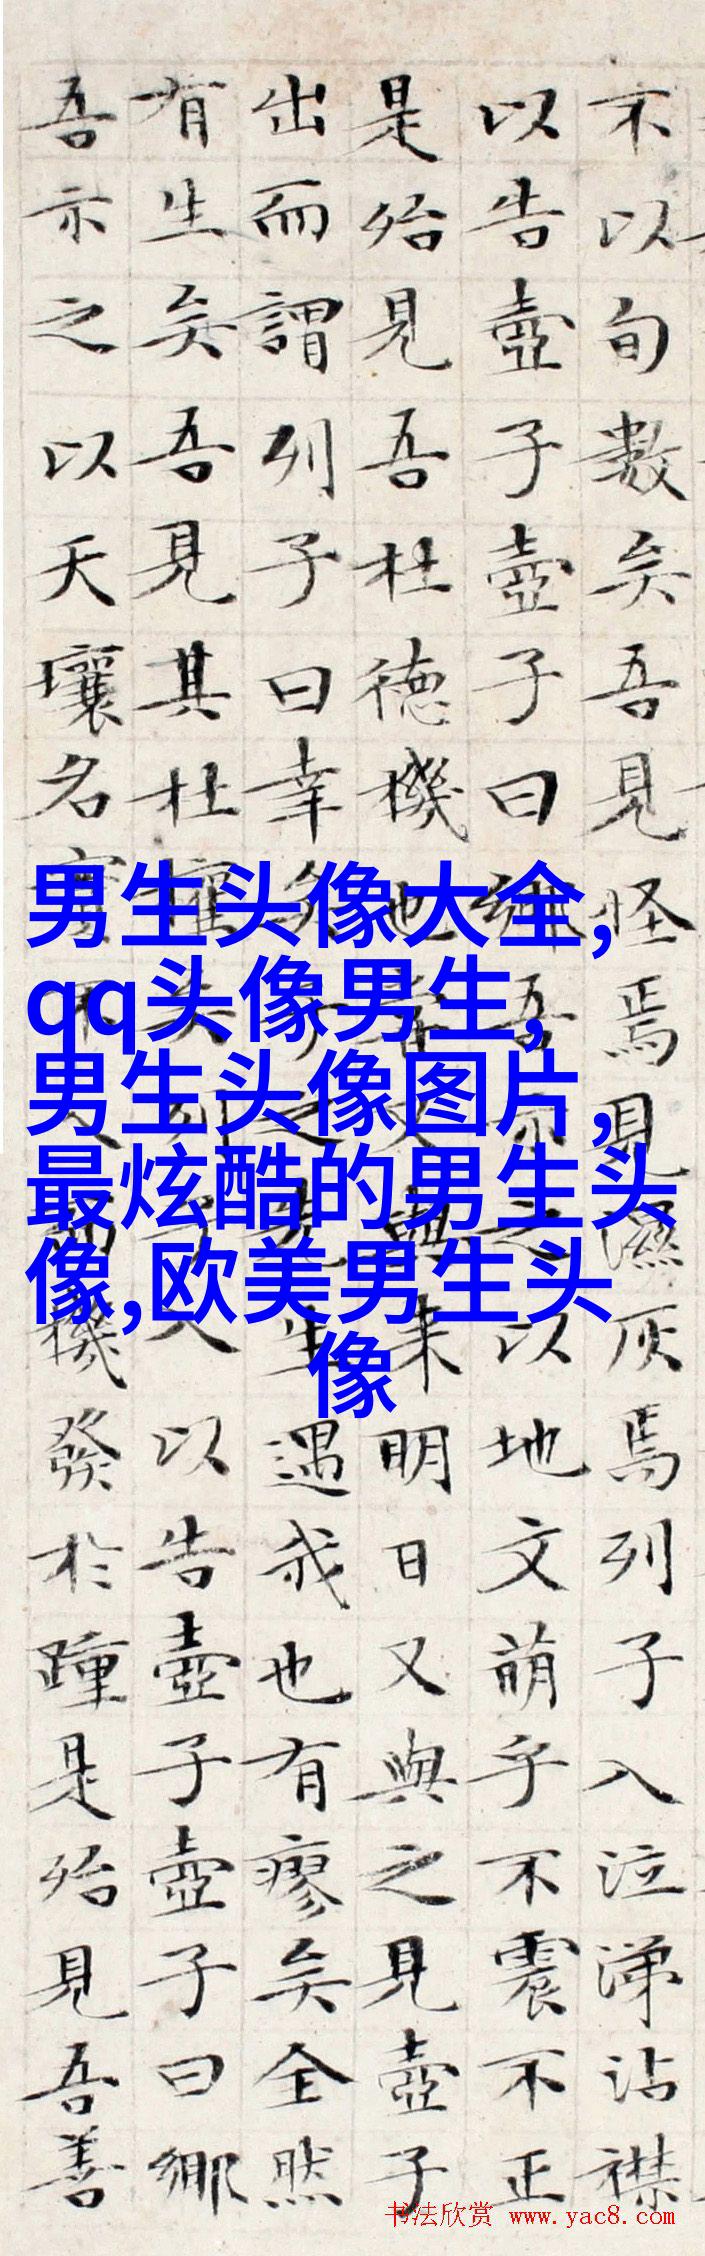 不以旬數矣吾見怪焉見濕灰焉列子入泣涕沾襟
以告壺子壺子曰鄉吾示之以地文萌乎不震不正
是殆見吾杜德機也嘗又與來明日又與之見壺子
出而謂列子曰幸矣子之先生遇我也有瘳矣全然
有生矣吾見其杜權矣列子入以告壺子壺子曰鄉
吾示之以天壤名實不入機發於踵是殆見吾善
男生头像大全,
qq头像男生,
男生头像图片,
最炫酷的男生头
像,欧美男生头
像
书法欣赏 www.yac8.com